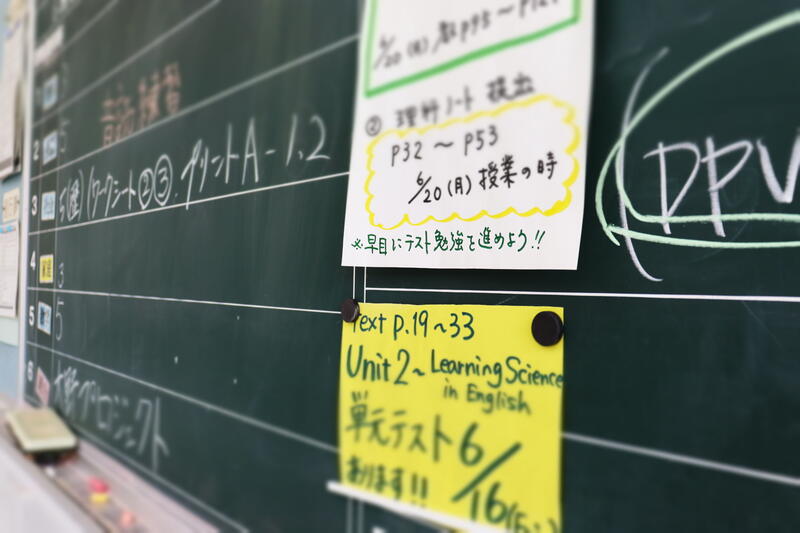 6/20(月) 教p95〜p121
② 理科ノート 提出
p32 〜 p53
6/20(月) 授業の時
※早目にテスト勉強を進めよう!!
Text p.19~33
Unit 2~ Learning Science
in English
単元テスト 6/16(
あります!!
2
3 (ワークシート②③, プリントA-1,2
4 3
5 5
6 プロジェクト